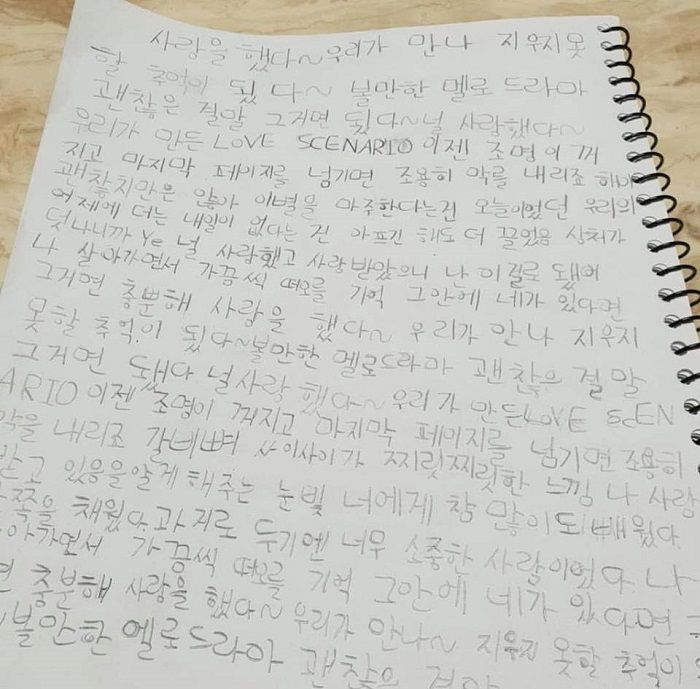 사랑을 했다~우리가 만나 지우지못
할 추억이 됬다~ 볼만한 멜로드라마
괜찮은 결말 그거면 됬다~널 사랑했다~
우리가 만든LOVE SCENARIO이젠 조명이 꺼
지고 마지막 페이지를 넘기면 조용히 막를 내리죠
괜찮치만은 않아 이별을 마주한다는건 오늘이었던 우리의
어제에 더는 내일이 없다는 건 아프긴 해도 더 끌었음 상처가
덧나니까 Ye 널 사랑했고 사랑 받았으니 난 이걸로 됐어
나 살아가면서 가끔씩 떠오를 기억 그안에 네가 있다면
그거면 충분해 사랑을 했다~ 우리가 만나 지우지
못할 추억.이 됬다~볼만한 멜로드라마 괜찮은 결말
그거면 됐다 널사랑 했다~우리가 만든LOVE SCEN
ARIO이젠 조명이 꺼지고 마지막 페이지를 넘기면 조용히
막을 내리죠 갈비뼈 사이사이가 찌릿찌릿한 느낌 나 사랑
받고 있음을알게 해주는 눈빛 너에게 참 많이도 배웠다.
쪽을 채웠다.과거로 두기엔 너무 소중한 사람이었다. 나
아가면서 가끔씩 떠오를 기억 그안에 네가 있다면
충분해 사랑을 했다~우리가 만나~ 지우지 못할 추억이
볼만한 멜로드라마 괜찮은 결말